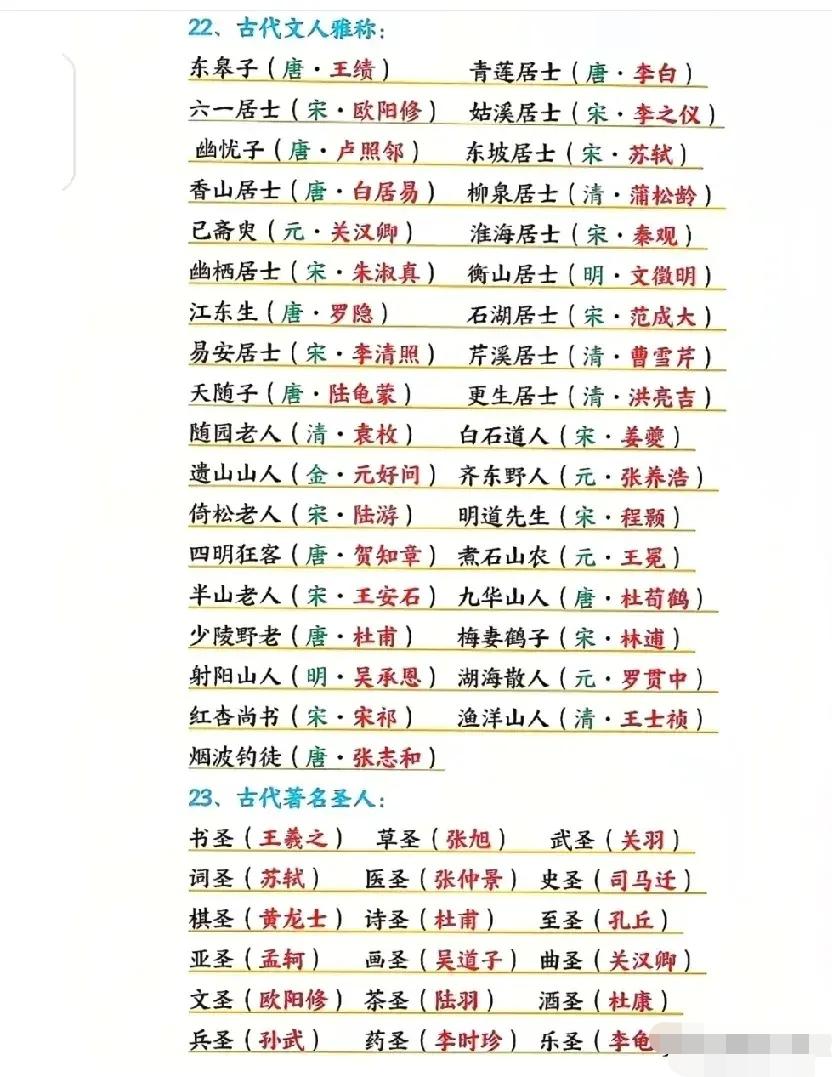 22、古代文人雅称：
东皋子（唐·王绩） 青莲居士（唐·李白）
六一居士（宋·欧阳修） 姑溪居士（宋·李之仪）
幽忧子（唐·卢照邻） 东坡居士（宋·苏轼）
香山居士（唐·白居易） 柳泉居士（清·蒲松龄）
已斋臾（元·关汉卿） 淮海居士（宋·秦观）
幽栖居士（宋·朱淑真） 衡山居士（明·文徵明）
江东生（唐·罗隐） 石湖居士（宋·范成大）
易安居士（宋·李清照） 芹溪居士（清·曹雪芹）
天随子（唐·陆龟蒙） 更生居士（清·洪亮吉）
随园老人（清·袁枚） 白石道人（宋·姜夔）
遗山山人（金·元好问） 齐东野人（元·张养浩）
倚松老人（宋·陆游） 明道先生（宋·程颢）
四明狂客（唐·贺知章） 煮石山农（元·王冕）
半山老人（宋·王安石） 九华山人（唐·杜荀鹤）
少陵野老（唐·杜甫） 梅妻鹤子（宋·林逋）
射阳山人（明·吴承恩） 湖海散人（元·罗贯中）
红杏尚书（宋·宋祁） 渔洋山人（清·王士祯）
烟波钓徒（唐·张志和）
23、古代著名圣人：
书圣（王羲之） 草圣（张旭） 武圣（关羽）
词圣（苏轼） 医圣（张仲景） 史圣（司马迁）
棋圣（黄龙士） 诗圣（杜甫） 至圣（孔丘）
亚圣（孟轲） 画圣（吴道子） 曲圣（关汉卿）
文圣（欧阳修） 茶圣（陆羽） 酒圣（杜康）
兵圣（孙武） 药圣（李时珍） 乐圣（李龟